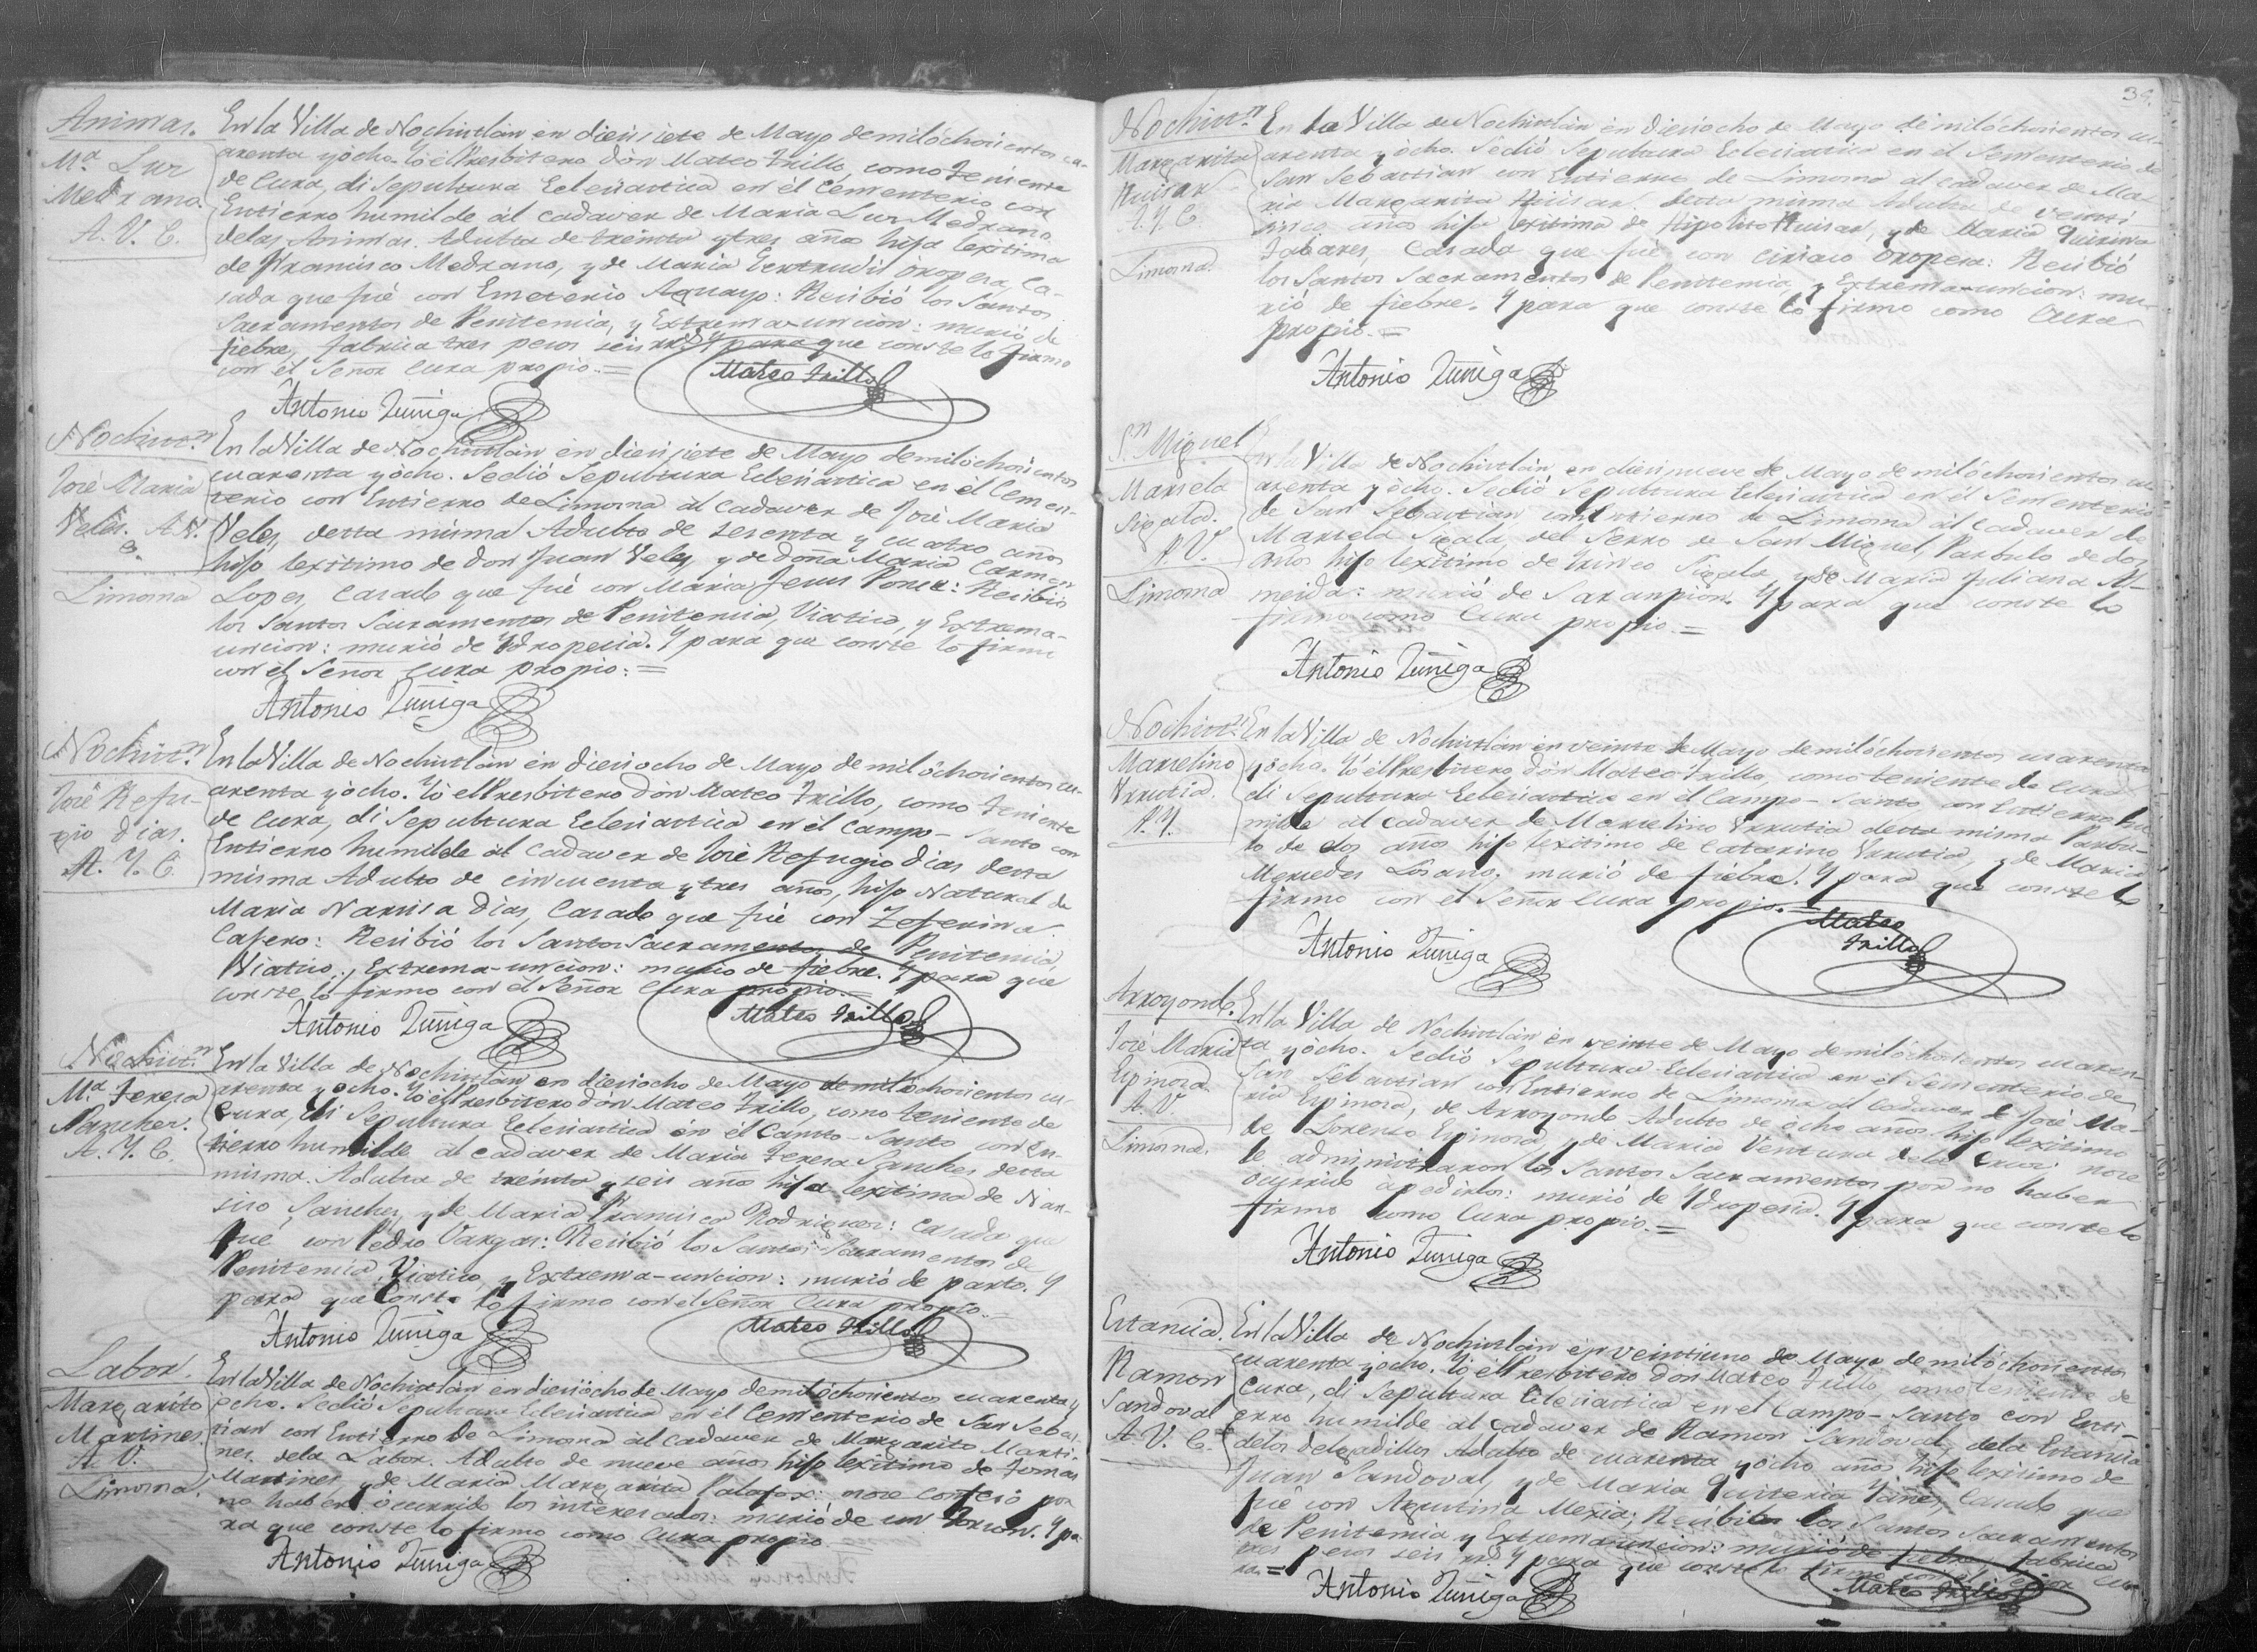 Animas.
Mª Luz
Medrano.
A. V. C.
En la Villa de Nochistlan en diesisiete de Mayo de mil ochosientos cu-
arenta y ocho. Yó el Presbitero Dón Mateo Trillo, como Teniente
de Cura, di Sepultura Eclesiastica en el Cementerio con
Entierro humilde al cadaver de Maria Luz Medrano
delas Animas. Adulta de treinta y tres años hija lexitima
de Francisco Medrano, y de Maria Gertrudis Oropesa, Ca-
sada que fué con Emeterio Aguayo: Resibió los Santos
Sacramentos de Penitensia, y Extrema-uncion: murió de
fiebre, fabrica tres pesos seis rrs. Y para que conste lo firmo
con el Señor Cura propio. =
Antonio Zuñiga
Mateo Trillo
Nochist.n
José Maria
Veles. A.V.
C.
Limosna
En la Villa de Nochistlan en diesisiete de Mayo de mil ochosientos
cuarenta y ocho. Sedió Sepultura Eclesiastica en el Cemen-
terio con Entierro de Limosna al Cadaver de José Maria
Veles, desta misma Adulto de sesenta y cuatro años
hijo lexitimo de Don Juan Veles, y de Doña Maria Carmen
Lopes, Casado que fué con Maria Jesus Ponse: Resibió
los Santos Sacramentos de Penitensia, Viatico, y Extrema-
uncion: murió de Ydropesia. Y para que conste lo firmo
con el Señor Cura propio: =
Antonio Zuñiga
Nochist.n
José Refu-
gio Dias.
A. Y. C.
En la Villa de Nochistlan en diesiocho de Mayo de mil ochosientos cu-
arenta y ocho. Yó el Presbitero Dón Mateo Trillo, como Teniente
de Cura, di Sepultura Eclesiastica en el Campo-Santo con
Entierro humilde al Cadaver de José Refugio Dias desta
misma Adulto de cincuenta y tres años, hijo Natural de
Maria Narcisa Dias, Casado que fué con Zeferina
Cafero: Resibió los Santos Sacramentos de Penitensia
Viatico, y Extrema-uncion: murio de fiebre. Y para que
conste lo firmo con el Señor Cura propio. =
Antonio Zuñiga
Mateo Trillo
Nochist.n
Mª Teresa
Sanches.
A. Y. C.
En la Villa de Nochistlan en diesiocho de Mayo de mil ochosientos cu-
arenta y ocho. Yó el Presbitero Dón Mateo Trillo, como teniente de
Cura, di Sepultura Eclesiastica en el Canto-Santo con En-
tierro humilde al cadaver de Maria Teresa Sanches desta
misma. Adulta de treinta y seis años hija lexitima de Nar-
siso Sanches, y de Maria Francisca Rodrigues: Casada que
fué con Pedro Vargas: Resibió los Santos Sacramentos de
Penitensia, Viatico, y Extrema-uncion: murió de parto. Y
para que conste lo firmo con el Señor Cura propio. =
Antonio Zuñiga
Mateo Trillo
Labor.
Margarito
Martines
A. V.
Limosna.
En la Villa de Nochistlan en diesiocho de Mayo de mil ochosientos cuarenta y
ocho. Sedió Sepultura Eclesiastica en el Cementerio de San Sebas-
tian con Entierro de Limosna al Cadaver de Margarito Marti-
nes. dela Labor. Adulto de nueve años hijo lexitimo de Tomas
Martines, y de Maria Margarita Palafox: nose confesó por
no haber ócurrido los interesados: murió de un torson. Y pa-
ra que conste lo firmo como Cura propio.
Antonio Zuñiga
39.
Nochist.n
Margarita
Huisar
A. Y. C.
Limosna.
En la Villa de Nochistlan en diesiocho de Mayo de mil ochosientos cu-
arenta y ocho. Sedió Sepultura Eclesiastica en el Sementerio de
San Sebastian con Entierro de Limosna al cadaver de Ma-
ria Margarita Huisar. desta misma Adulta de veinti
sinco años hija lexitima de Hipolito Huisar, y de Maria Quirina
Tabares, Casada que fué con Ciriaco Oropesa: Resibió
los Santos Sacramentos de Penitensia, y Extrema-uncion: mu-
rió de fiebre. Y para que conste lo firmo como Cura
propio. =
Antonio Zuñiga
S.n Miguel
Marsela
Sigala.
P. V.
Limosna
En la Villa de Nochistlan, en diesinueve de Mayo de mil ochosientos cu-
arenta y ócho. Sedió Sepultura Eclesiastica en el Sementerio
de San Sebastian con Entierro de Limosna al Cadaver de
Marsela Sigala, del Serro de San Miguel, Parbulo de dos
años hijo lexitimo de Irineo Sigala, y de Maria Juliana Al-
meida: murió de Sarampion. Y para que conste lo
firmo como Cura propio. =
Antonio Zuñiga
Nochist.n
Marselino
Urrutia.
P. Y.
En la Villa de Nochistlan en veinte de Mayo de mil ochosientos cuarenta
y ocho. Yó el Presbitero Dón Mateo Trillo, como teniente de Cura
di Sepultura Eclesiastica en el Campo-Santo, con Entierro hu-
milde al cadaver de Marselino Urrutia desta misma Parbu-
lo de dos años hijo lexitimo de Catarino Urrutia, y de Maria
Mersedes Losano, murió de fiebre. Y para que conste lo
firmo con el Señor Cura propio. =
Antonio Zuñiga
Mateo
Trillo
Arroyond.
José Maria
Espinosa.
A. V.
Limosna.
En la Villa de Nochistlan en veinte de Mayo de mil ochosientos cuaren-
ta y ócho. Sedió Sepultura Eclesiastica en el Sementerio de
San Sebastian con Entierro de Limosna al Cadaver de José Ma-
ria Espinosa, de Arroyondo Adulto de ócho años hijo lexitimo
de Lorenso Espinosa, y de Maria Ventura dela Crus: nose
le administraron los Santos Sacramentos por no haber
ocurrido apedirlos: murió de Ydropesia. Y para que conste lo
firmo como Cura propio. =
Antonio Zuñiga
Estansia.
Ramon
Sandoval
A. V. C.
En la Villa de Nochistlan en veintiuno de Mayo de mil ochosientos
cuarenta y ocho. Yó el Presbitero Dón Mateo Trillo como teniente de
Cura, di Sepultura Eclesiastica en el Campo-Santo con Enti-
erro humilde al Cadaver de Ramon Sandoval, dela Estansia
delos Delgadillos Adulto de cuarenta y ocho años hijo lexitimo de
Juan Sandoval, y de Maria Quiteria Yañes, Casado que
fué con Agustina Mexia: Resibió los Santos Sacramentos
de Penitensia y Extremauncion: murió de fiebre, fabrica
tres pesos seis rrs. Y para que conste lo firmo con el Señor Cu-
ra. =
Antonio Zuñiga
Mateo Trillo